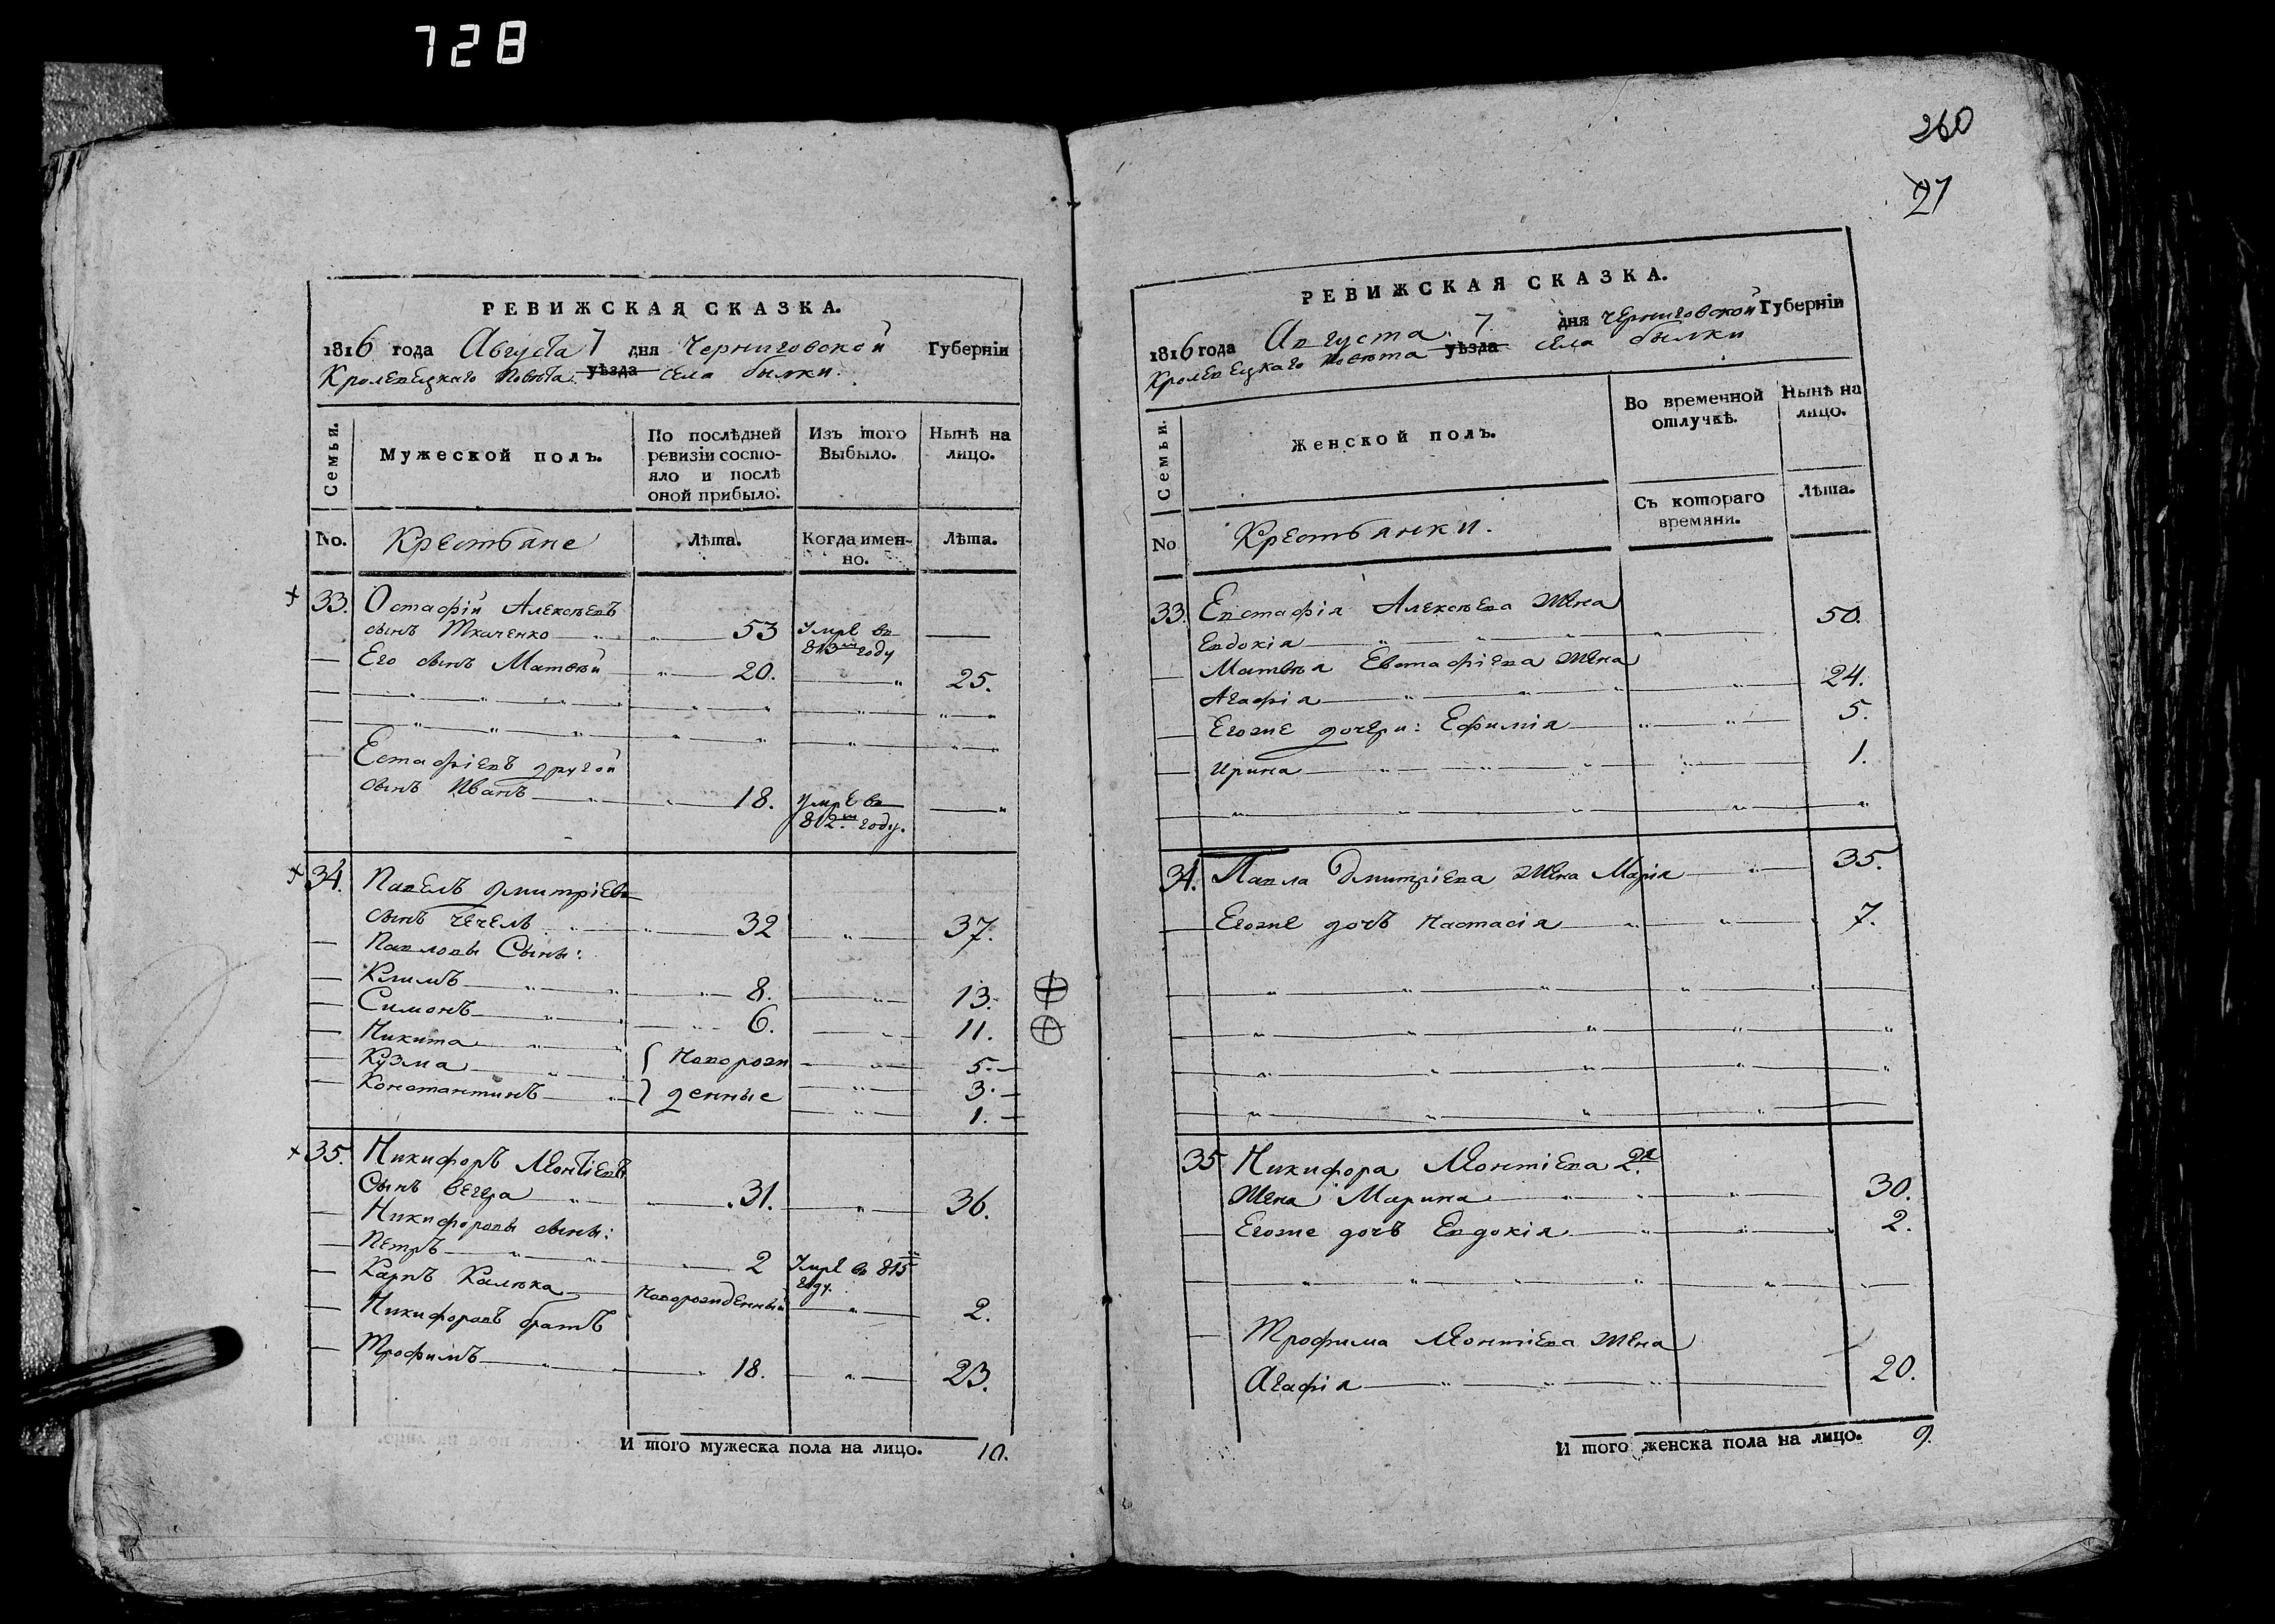 728
РЕВИЖСКАЯ СКАЗКА.
1816 года Августа 7 дня Черниговской Губерніи
Кролевецкаго Повѣта уѣзда села былки.
Семьи.
Мужеской полъ.
По послѣдней ревизіи состо-
яло и послѣ
оной прибыло.
Изъ того
Выбыло.
Нынѣ на
лицо.
No.
Крестьяне
Лѣта.
Когда имен-
но.
Лѣта.
33. Остафій Алексѣевъ
сынъ Ткаченко 53 Умре въ
813м году
Его сынъ Матвѣй 20. 25.
Естафіевъ другой
сынъ Иванъ 18. умре въ
812.м году.
34. Павелъ Дмитріевъ
сынъ Чечель 32 37.
Павловы Сыны:
Климъ 8. 13.
Симонъ 6. 11.
Никита {Новорож 5.
Кузма 3.
Константинъ } денные 1.
35. Никифоръ Леонтіевъ
Сынъ Вегера 31. 36.
Никифоровы сыны:
Петръ 2 Умре въ 815
году.
Карпъ Новорожденный 2.
Никифоровъ братъ
Трофимъ 18. 23.
И того мужеска пола на лицо. 10.
260
27
РЕВИЖСКАЯ СКАЗКА.
1816 года Августа 7. дня Черниговской Губерніи
Кролевецкаго Повѣта уѣзда села былки
Семьи.
Женской полъ.
Во временной
отлучкѣ.
Нынѣ на
лицо.
No
Крестьянки.
Съ котораго
времяни.
Лѣта.
33. Евстафія Алексѣева жена
Евдокія 50.
Матвѣя Евстафіева жена
Агафія 24.
Егоже дочери: Ефимія 5.
Ирина 1.
34. Павла Дмитріева жена Марія 35.
Егоже дочь Настасія 7.
35 Никифора Леонтіева 2я
жена Марина 30.
Егоже дочь Евдокія 2.
Трофима Леонтіева жена
Агафія 20.
И того женска пола на лицо. 9.